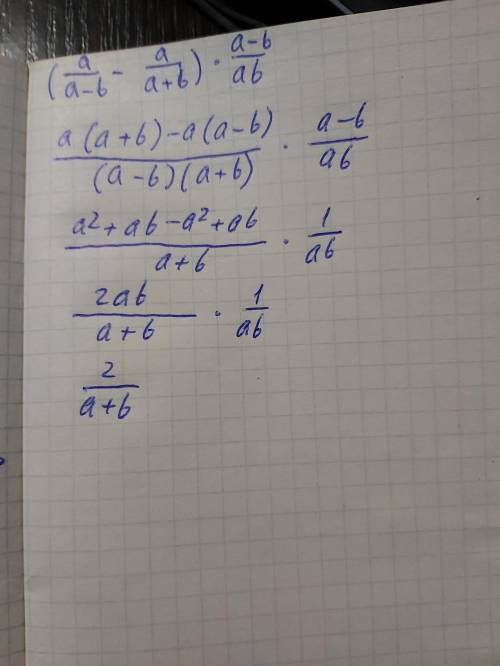 (a/(a-b) - a/(a+b)) · (a-b)/(ab)
(a(a+b)-a(a-b))/((a-b)(a+b)) · (a-b)/(ab)
(a²+ab-a²+ab)/(a+b) · 1/(ab)
(2ab)/(a+b) · 1/(ab)
2/(a+b)